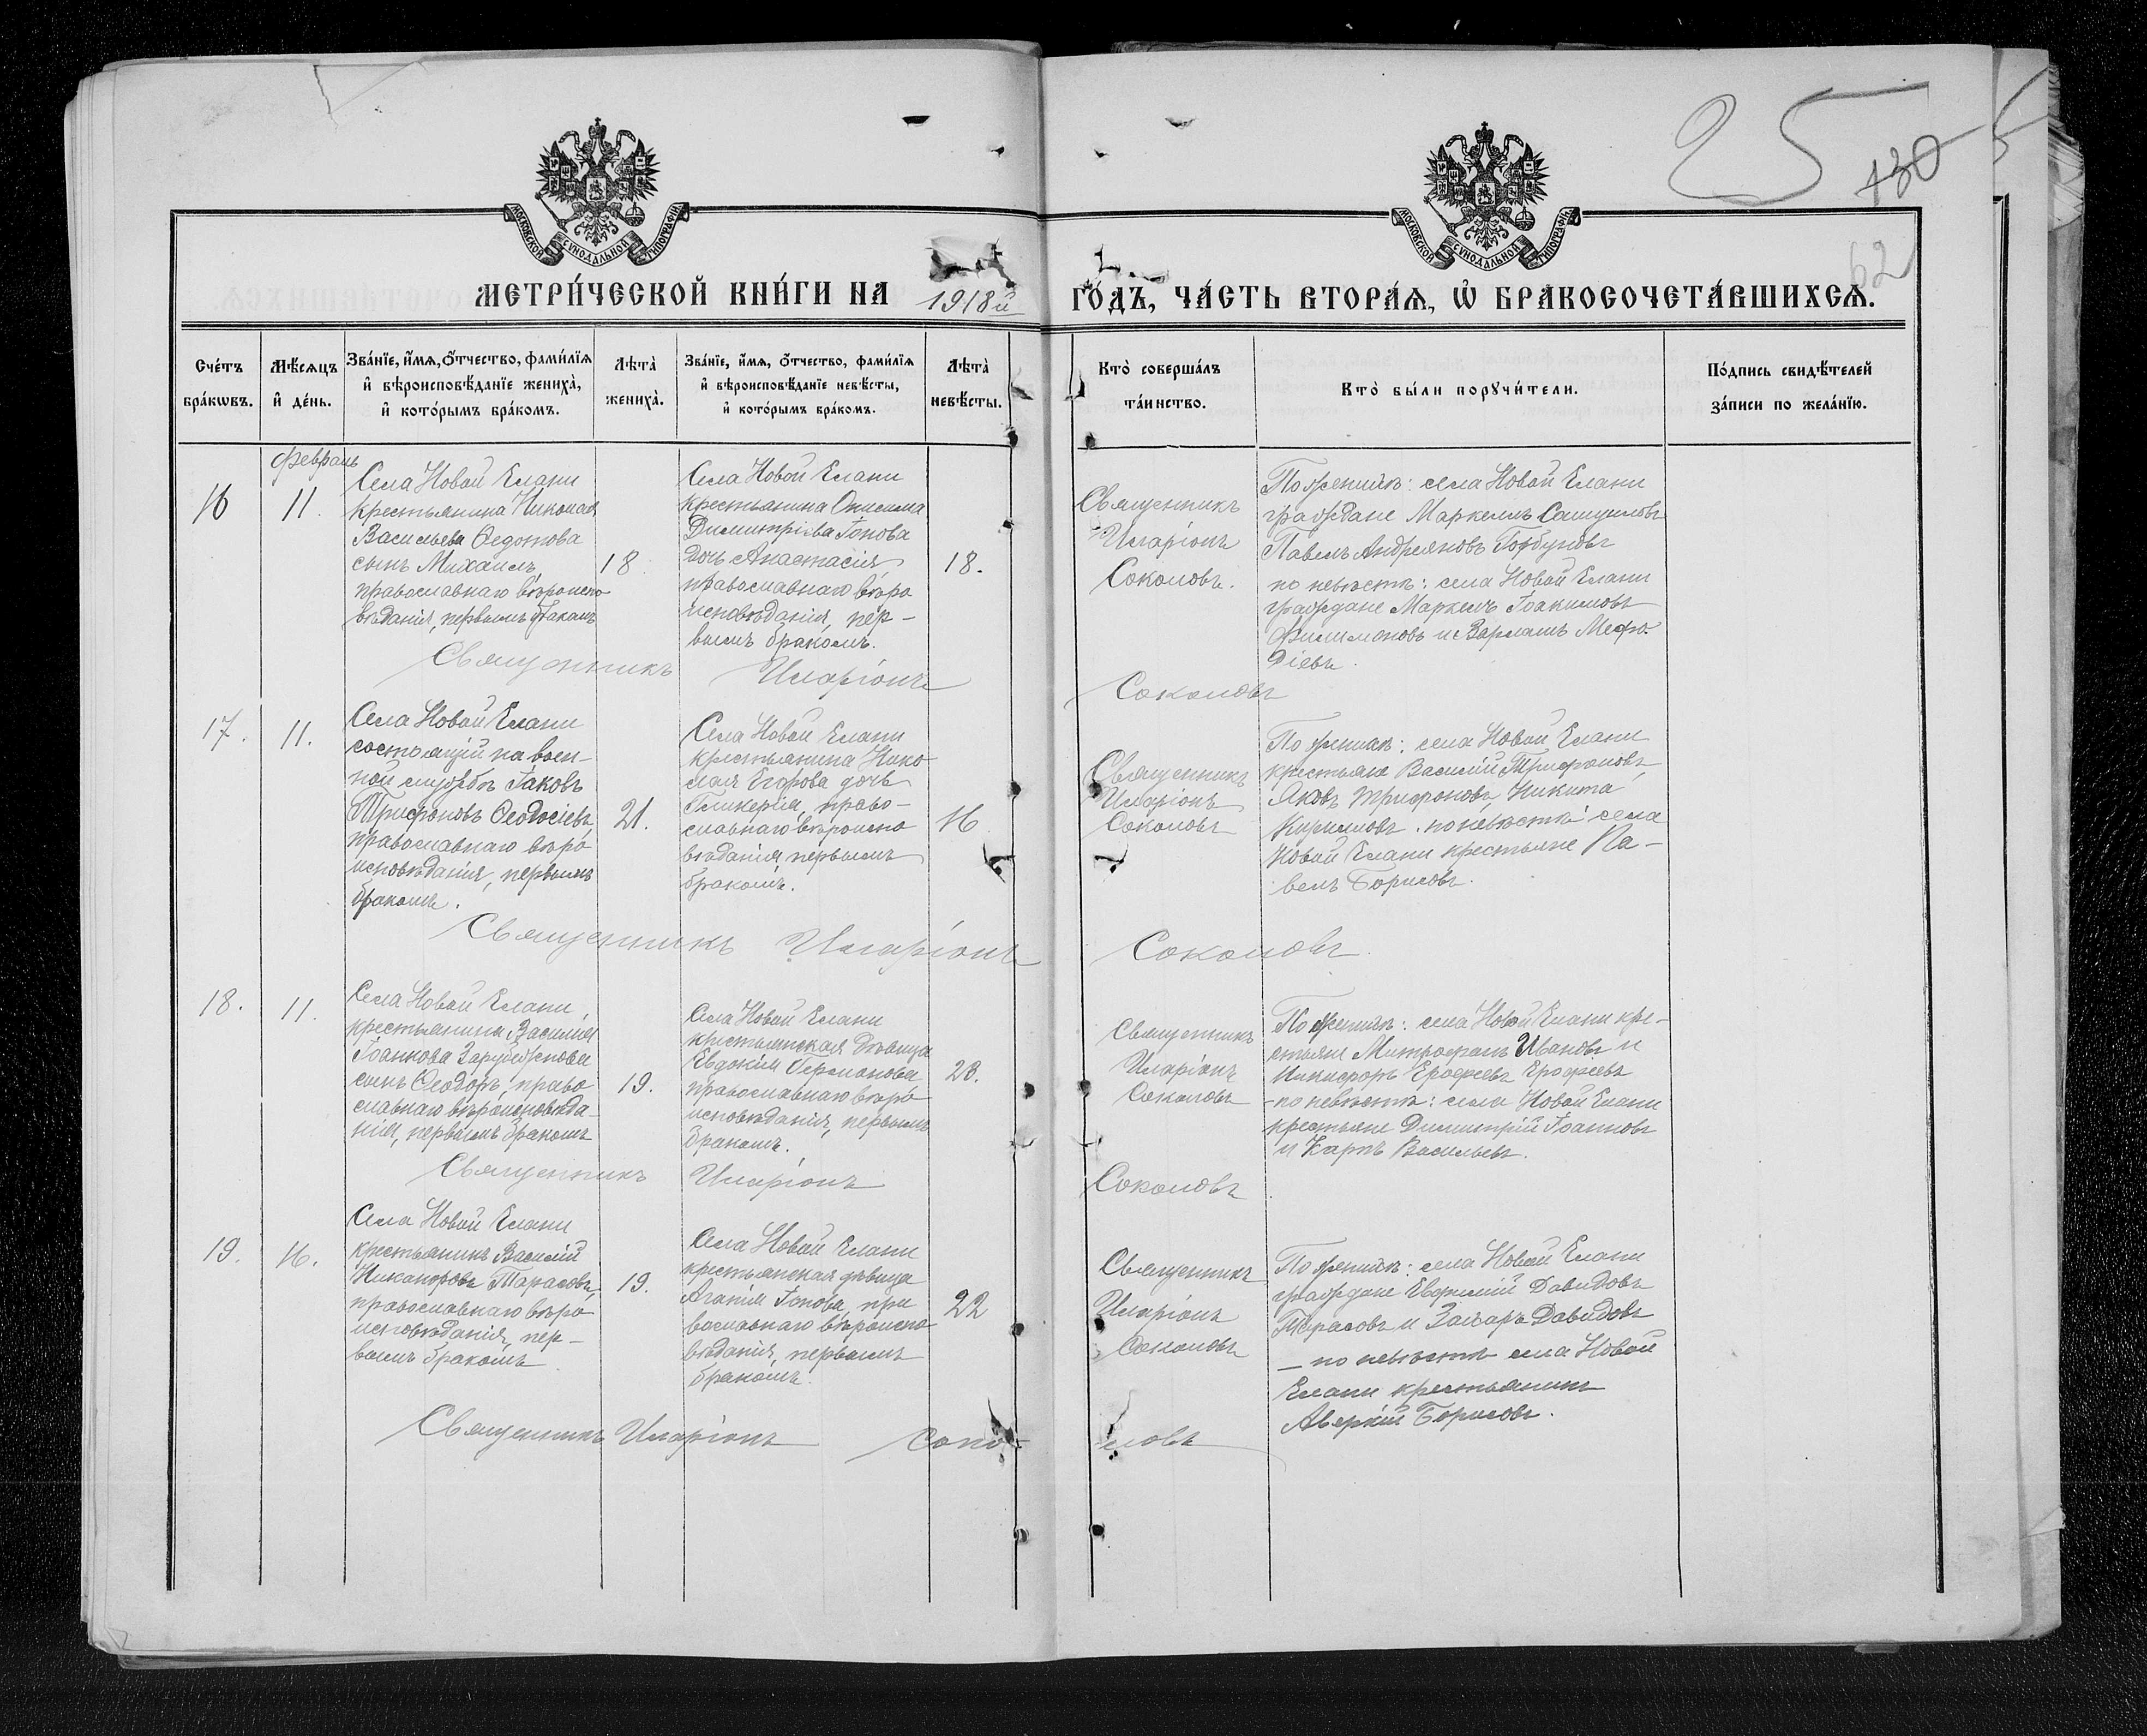 25
130
62
МОСКОВСКОЙ СѴНОДАЛЬНОЙ ТИПОГРАФІИ
МОСКОВСКОЙ СѴНОДАЛЬНОЙ ТИПОГРАФІИ
МЕТРИ́ЧЕСКОЙ КНИ́ГИ НА 1918й
ГО́ДЪ, ЧА́СТЬ ВТОРА́Ѧ, Ѽ БРАКОСОЧЕТА́ВШИХСѦ.
Сче́тъ
бра́кѡвъ.
Мѣ́сѧцъ
и҆ де́нь.
Зва́нїе, и҆́мѧ, ѻ҆́тчество, фами́лїѧ
и҆ вѣроисповѣ́данїе жениха̀,
и҆ кото́рымъ бра́комъ.
Лѣта̀
жениха̀.
Зва́нїе, и҆́мѧ, ѻ҆́тчество, фами́лїѧ
и҆ вѣроисповѣ́данїе невѣ́сты,
и҆ кото́рымъ бра́комъ.
Лѣта̀
невѣ́сты.
Кто̀ соверша́лъ
та́инство.
Кто̀ бы́ли порꙋчи́тели.
По́дпись свидѣ́телей
за́писи по жела́нїю.
Февраль
16
11.
Села Новой Елани
крестьянина Николая
Васильева Ѳедотова
сынъ Михаилъ,
православнаго вѣроиспо
вѣданія, первымъ бракомъ
18
Села Новой Елани
крестьянина Онисима
Димитріева Іонова
дочь Анастасія
православнаго вѣро
исповѣданія, пер-
вымъ бракомъ.
18.
Священникъ
Иларіонъ
Соколовъ.
По женихѣ: села Новой Елани
граждане Маркеллъ Самуиловъ
Павелъ Андреяновъ Горбуновъ
по невѣстѣ: села Новой Елани
граждане Маркелъ Іоакимовъ
Филимоновъ и Варлаамъ Мефо
діевъ.
Священникъ Иларіонъ Соколовъ
17.
11.
Села Новой Елани
состоящій на воен-
ной службѣ Іаковъ
Трифоновъ Ѳеодосіевъ,
православнаго вѣро
исповѣданія, первымъ
бракомъ.
21.
Села Новой Елани
крестьянина Нико
лая Егорова дочь
Гликерія, право-
славнаго вѣроиспо
вѣданія первымъ
бракомъ.
16
Священникъ
Иларіонъ
Соколовъ
По женихѣ: села Новой Елани
крестьяне Василій Трифоновъ,
Яковъ Трифоновъ, Никита
Кирилловъ. по невѣстѣ села
Новой Елани крестьяне Па-
велъ Борисовъ.
Священникъ Иларіонъ Соколовъ.
18.
11.
Села Новой Елани,
крестьянина Василія
Іоаннова Зарубежнова
сынъ Ѳеодоръ, право
славнаго вѣроисповѣда-
нія, первымъ бракомъ
19.
Села Новой Елани
крестьянская дѣвица
Евдокія Германова
православнаго вѣро
исповѣданія, первымъ
бракомъ.
23.
Священникъ
Иларіонъ
Соколовъ
По женихѣ: села Новой Елани кре-
стьяне Митрофанъ Ивановъ и
Никифоръ Ерофеевъ Ерофеевъ
-по невѣстѣ: села Новой Елани
крестьяне Димитрій Іоанновъ
и Карпъ Васильевъ.
Священникъ Иларіонъ Соколовъ
19.
16.
Села Новой Елани
крестьянинъ Василій
Никаноровъ Тарасовъ,
православнаго вѣро
исповѣданія, пер-
вымъ бракомъ.
19.
Села Новой Елани
крестьянская дѣвица
Агапія Іонова, пра
вославнаго вѣроиспо
вѣданія, первымъ
бракомъ.
22
Священникъ
Иларіонъ
Соколовъ
По женихѣ: села Новой Елани
граждане Евфимій Давидовъ
Тарасовъ и Захаръ Давидовъ
- по невѣстѣ села Новой
Елани крестьянинъ
Аверкій Борисовъ.
Священникъ Иларіонъ Соко-ловъ